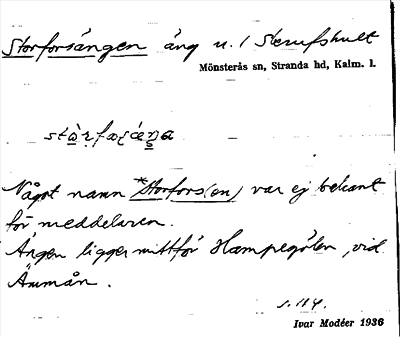 Storforsängen äng u. 1 Stenfshult
Mönsterås sn, Stranda hd, Kalm. l.
Något namn *Storfors(en) var ej bekant
för meddelaren.
Ängen ligger mittför Hampegölen, vid
Åumån.
s. 114.
Ivar Modéer 1936